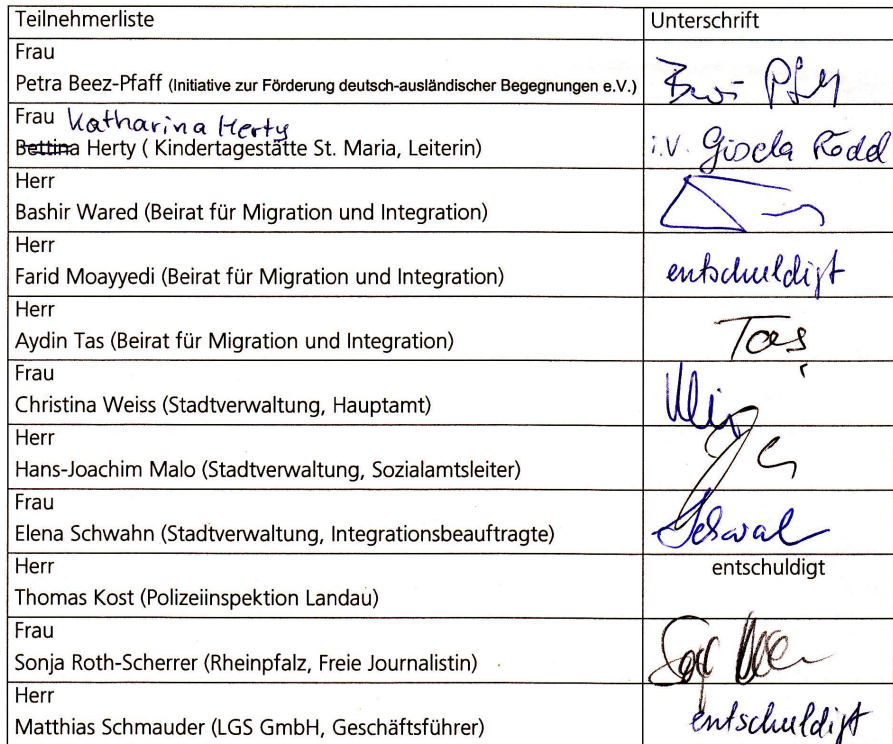 Teilnehmerliste Unterschrift
Frau
Petra Beez-Pfaff (Initiative zur Förderung deutsch-ausländischer Begegnungen e.V.)
Frau Katharina Herty
Bettina Herty ( Kindertagestätte St. Maria, Leiterin) i.V. Gisela Rödel
Herr
Bashir Wared (Beirat für Migration und Integration)
Herr
Farid Moayyedi (Beirat für Migration und Integration) entschuldigt
Herr
Aydin Tas (Beirat für Migration und Integration) Tas
Frau
Christina Weiss (Stadtverwaltung, Hauptamt)
Herr
Hans-Joachim Malo (Stadtverwaltung, Sozialamtsleiter)
Frau
Elena Schwahn (Stadtverwaltung, Integrationsbeauftragte)
Herr entschuldigt
Thomas Kost (Polizeiinspektion Landau)
Frau
Sonja Roth-Scherrer (Rheinpfalz, Freie Journalistin)
Herr
Matthias Schmauder (LGS GmbH, Geschäftsführer) entschuldigt